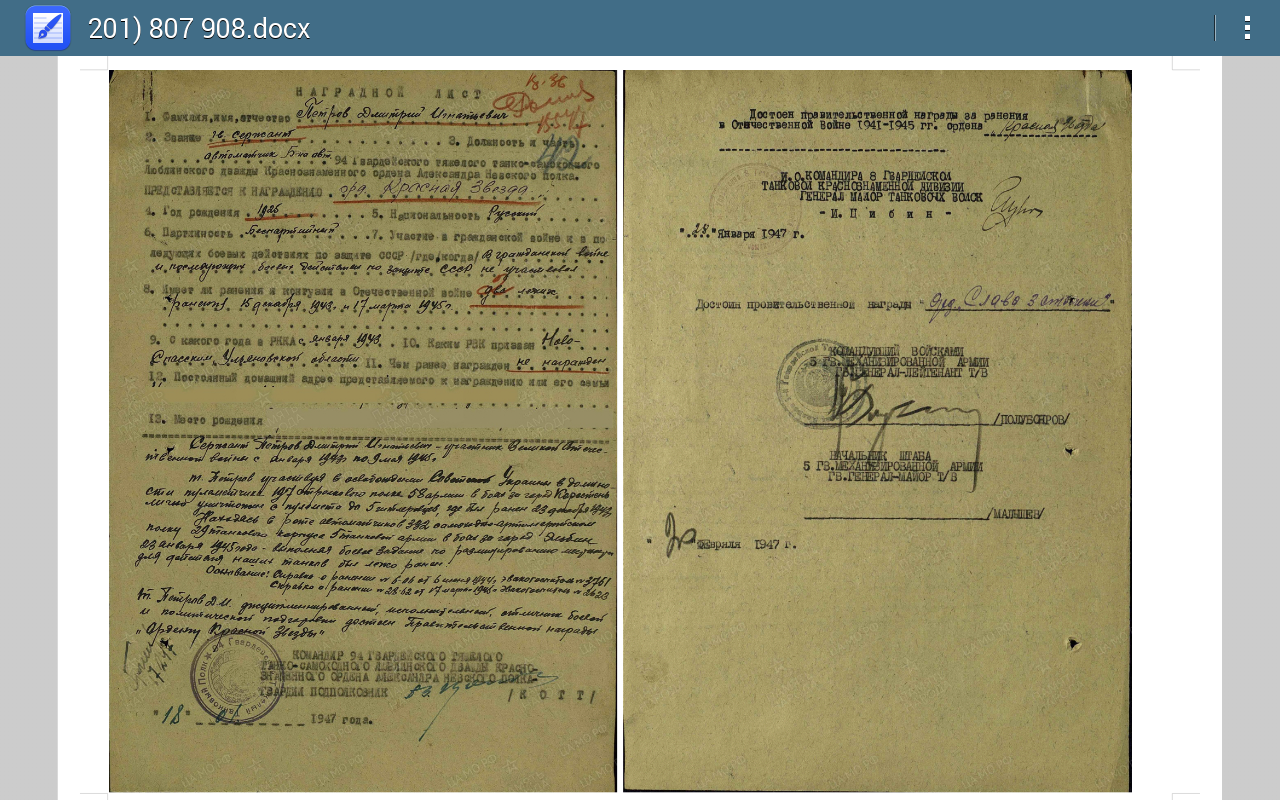 201) 807 908.docx
НАГРАДНОЙ ЛИСТ
1. Фамилия, имя, отчество Петров Дмитрий Игнатьевич
2. Звание гв. сержант 3. Должность и часть
автоматчик 94 Гвардейского тяжелого танко-самоходного
Люблинского дважды Краснознаменного ордена Александра Невского полка.
ПРЕДСТАВЛЯЕТСЯ К НАГРАЖДЕНИЮ орд. Красная Звезда
4. Год рождения 1925 5. Национальность Русский
6. Партийность Беспартийный 7. Участие в гражданской войне и в по
ледующих боевых действиях по защите СССР /где,когда/ В гражданской войне
и последующих боевых действиях по защите СССР не участвовал
8. Имеет ли ранения и контузии в Отечественной войне два легких
ранения 15 декабря 1943 и 17 марта 1945г.
9. С какого года в РККА с января 1943 10. Каким РВК призван Ново-
Спасским Ульяновской области 11. Чем ранее награжден не награжден
12. Постоянный домашний адрес представляемого к награждению или его семьи
13. Место рождения
Сержант Петров Дмитрий Игнатьевич - участник Великой Отече-
ственной войны с января 1943 по 9 мая 1945г.
т. Петров участвуя в освобождении Советской Украины в должно-
сти пулеметчика 197 стрелкового полка 58 армии в боях за город Коростень
лично уничтожил с пулемета до 5 гитлеровцев, где был ранен 23 декабря 1943
Находясь в роте автоматчиков 332 самоходно-артиллерийском
полку 29 танкового корпуса 5 танковой армии в боях за город Эльбин
23 января 1945 года - выполняя боевое задание по разминированию
для действия наших танков был легко ранен.
Основание: Справка о ранении № 6 от 6 июня 1944, эвакогоспиталь № 3761
Справка о ранении № 2862 от 17 марта 1945 эвакогоспиталь №
т. Петров Д.И. дисциплинированный, исполнительный, отличник боевой
и политической подготовки достоен Правительственной награды
"Ордену Красной Звезды"
КОМАНДИР 94 ГВАРДЕЙСКОГО ТЯЖЕЛОГО
ТАНКО-САМОХОДНОГО ЛЮБЛИНСКОГО ДВАЖДЫ КРАСНО-
ЗНАМЕННОГО ОРДЕНА АЛЕКСАНДРА НЕВСКОГО ПОЛКА-
ГВАРДИИ ПОДПОЛКОВНИК /КОТТ/
"18" 1947 года.
Достоен правительственной награды за ранения
в Отечественной Войне 1941-1945 гг. ордена Красная Звезда
И.О.КОМАНДИРА 8 ГВАРДЕЙСКОЙ
ТАНКОВОЙ КРАСНОЗНАМЕННОЙ ДИВИЗИИ
ГЕНЕРАЛ МАЙОР ТАНКОВЫХ ВОЙСК
- И. Пибин -
"28" Января 1947 г.
Достоин провительственной награды "Орд. Слава 3 степени"
КОМАНДУЮЩИЙ ВОЙСКАМИ
5 ГВ.МЕХАНИЗИРОВАННОЙ АРМИИ
ГВ.ГЕНЕРАЛ-ЛЕЙТЕНАНТ Т/В
/ПОЛУБОЯРОВ/
НАЧАЛЬНИК ШТАБА
5 ГВ.МЕХАНИЗИРОВАННОЙ АРМИИ
ГВ.ГЕНЕРАЛ-МАЙОР Т/В
/МАЛЫШЕВ/
Февраля 1947 г.